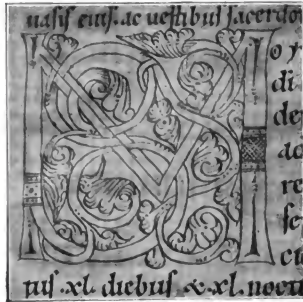 uaſiſ eiuſ. ac ueſtibuſ ſacerdo
oy
di
de
re
ſc
cu
tuſ .xl. diebuſ & .xl. noct